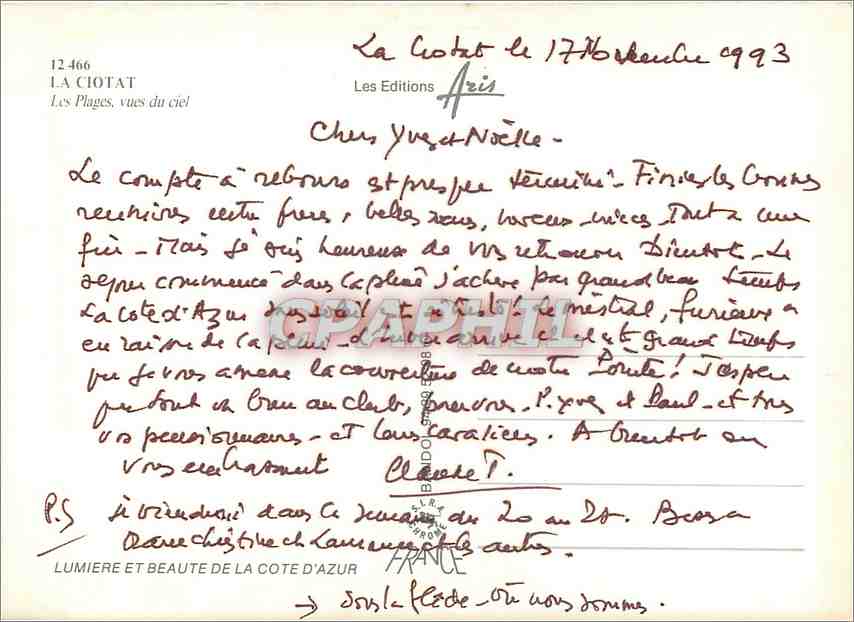 La Ciotat le 17 Novembre 1993
12 466
LA CIOTAT
Les Plages, vues du ciel
Les Editions Aris
Chers Yves et Noëlle -
Le compte à rebours est presque terminé - Finies les bonnes
réunions entre frères, belles sœurs, neveux, nièces - Tout a une
fin - Mais je suis heureuse de vous retrouver Bientôt - Le
séjour commencé dans la pluie s'achève par grand beau temps
La cote d'Azur sans soleil est si triste! Le mistral, furieux
en raison de la pluie - d'hiver arrive et il est grand temps
que je vous amène la couverture de notre ! J'espère
que tout va bien au club, - P. Yves et Paul - et tous
vos pensionnaires - et leurs cavaliers. A bientôt on
vous embrassent Claude T.
P.S je viendrai dans la semaine du 20 au 25. Bises a
Marie Christine et et les autres.
BANDOL
S.I.R.A. CHROME
FRANCE
LUMIERE ET BEAUTE DE LA COTE D'AZUR
→ Sous la flèche - Où nous sommes.
CPAPHIL